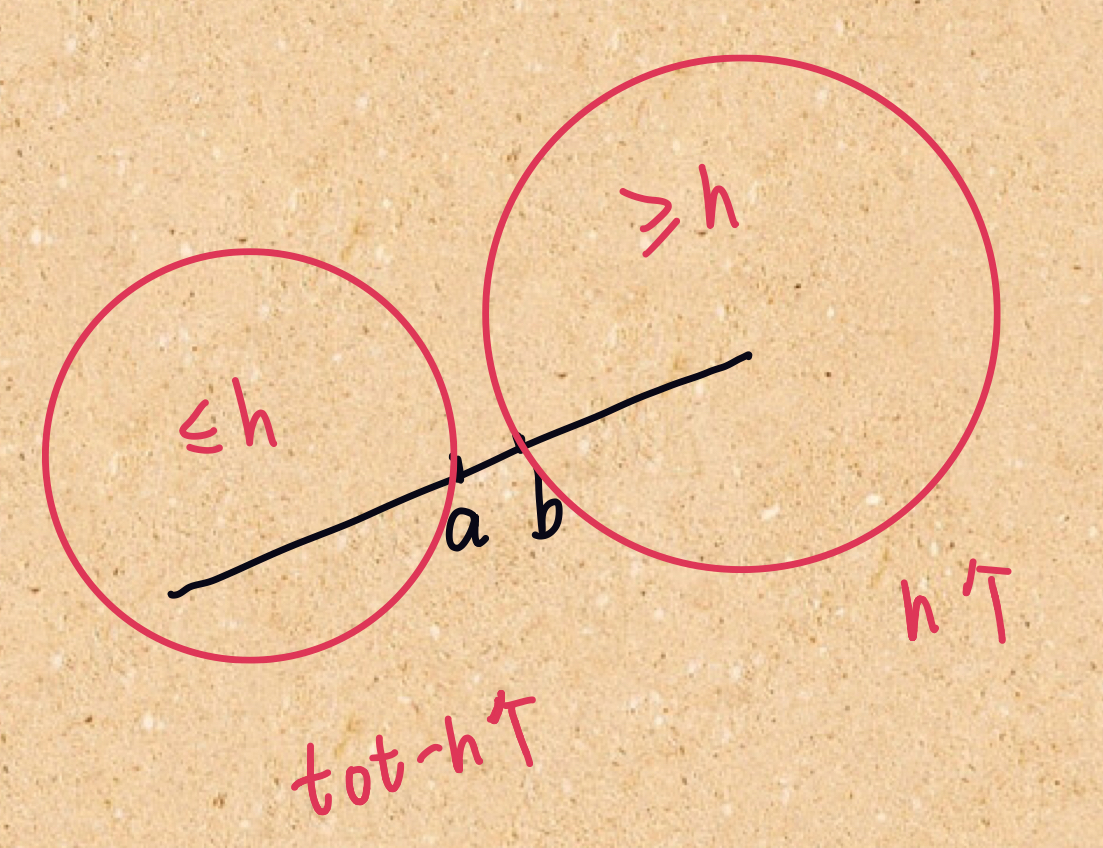 ≥h
≤h
a
b
h个
tot-h个